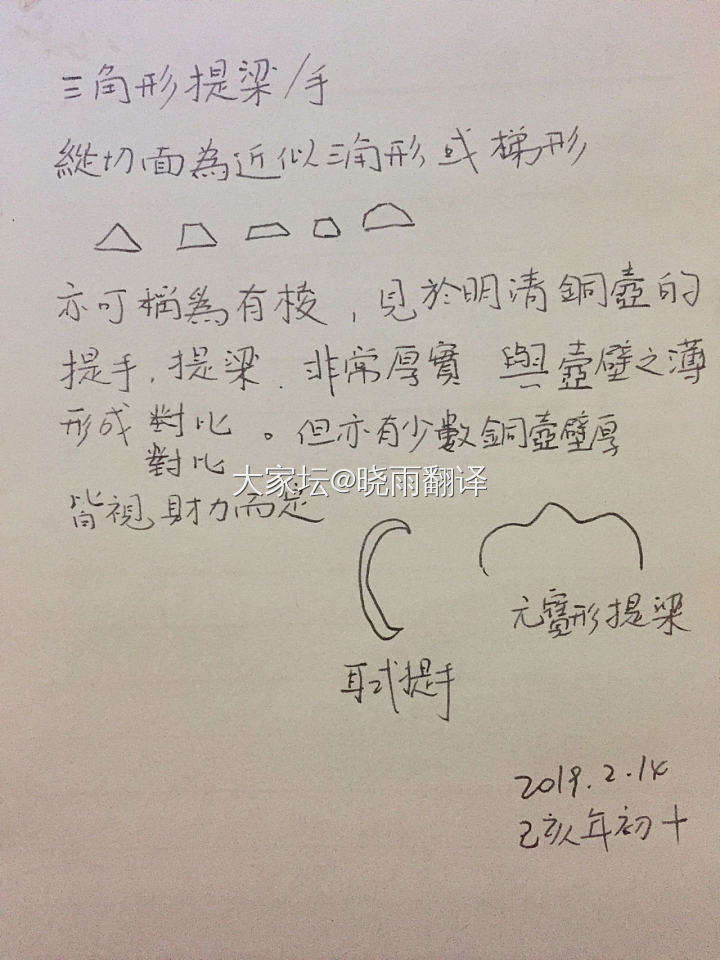 三角形提梁/手
縱切面為近似三角形或梯形
亦可稱為有棱，見於明清銅壺的
提手，提梁．非常厚實 與壺壁之薄
形成對比。但亦有少數銅壺壁厚
對比
大家坛@晓雨翻译
皆視財力而定
元寶形提梁
耳式提手
2019.2.14
己亥年初十